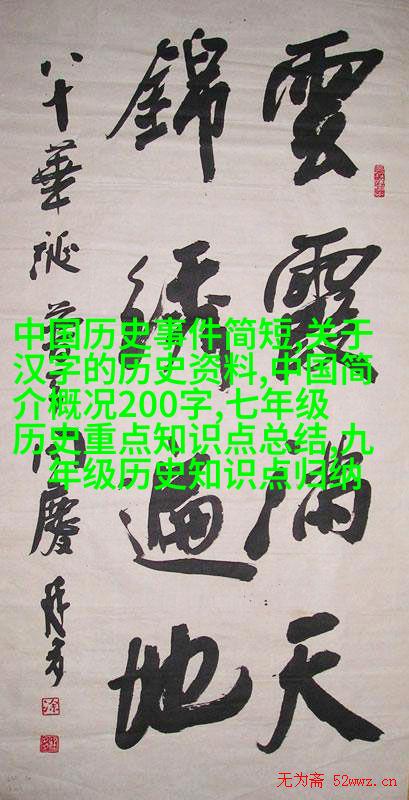 雲霞滿天
錦繡遍地
八十華誕同慶
中国历史事件简短,关于
汉字的历史资料,中国简
介概况200字,七年级
历史重点知识点总结,九
年级历史知识点归纳
无为斋 52wwz.cn